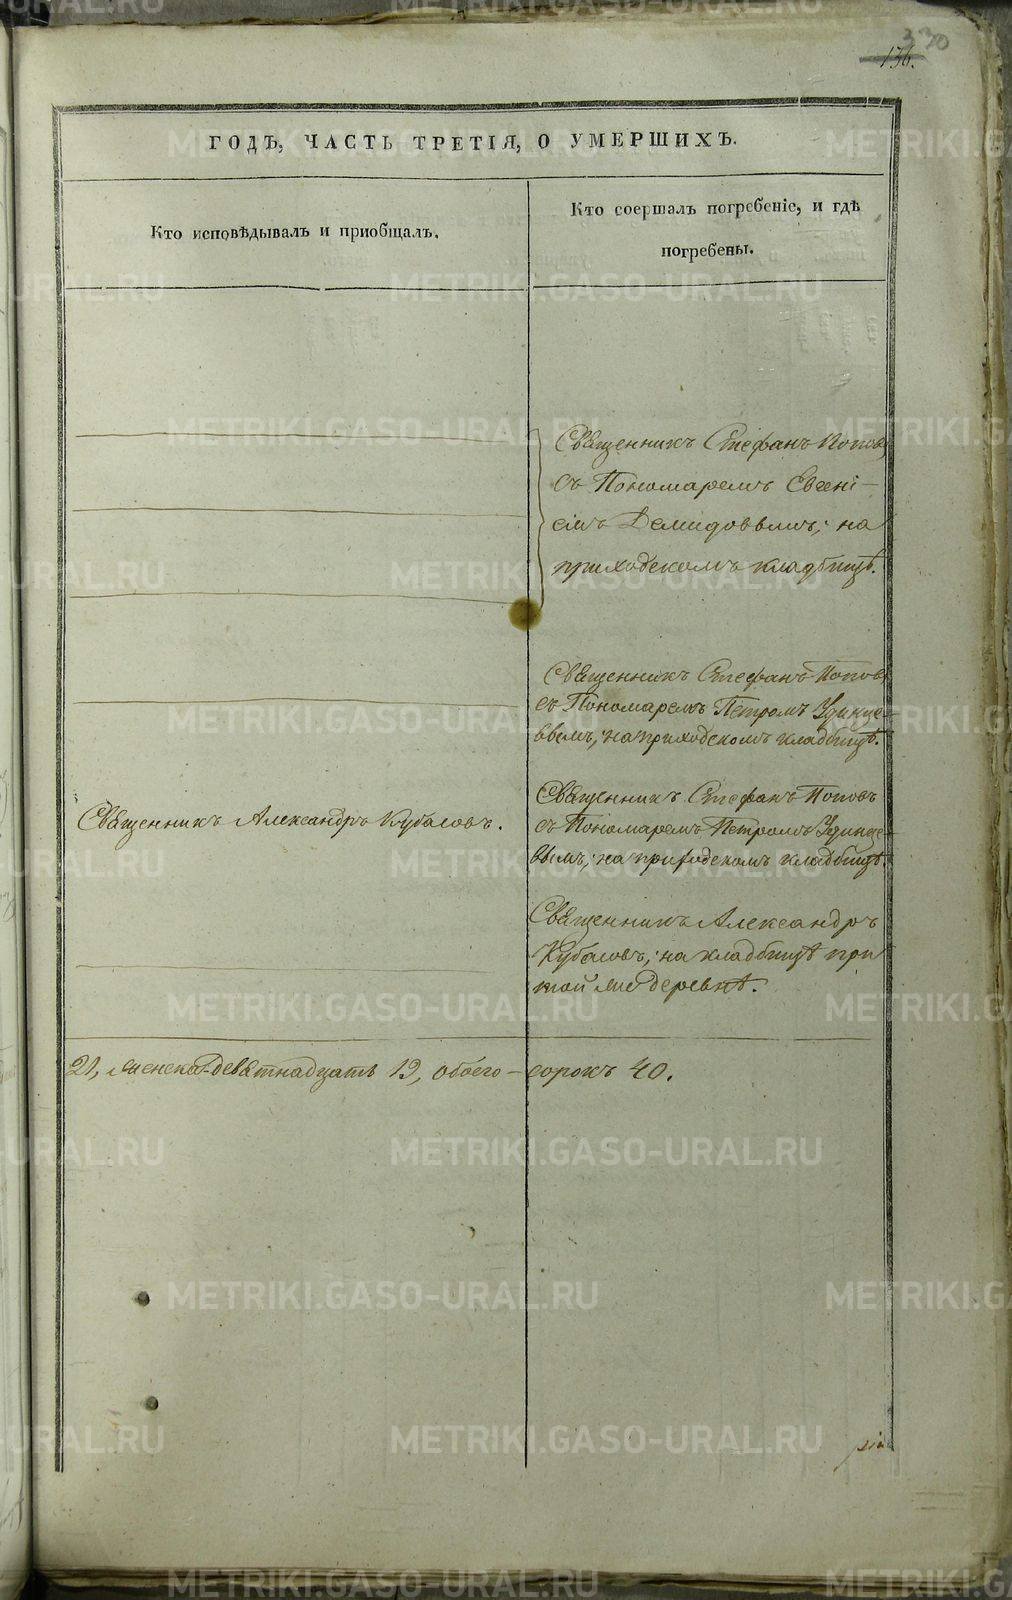 330
136.
ГОДЪ, ЧАСТЬ ТРЕТІЯ, О УМЕРШИХЪ.
Кто исповѣдывалъ и пріобщалъ.
Кто соершалъ погребеніе, и гдѣ
погребены.
Священникъ Стефанъ Поповъ
съ Пономаремъ Евгені-
емъ Демидовымъ; на
приходскомъ кладбищѣ.
Священникъ Стефанъ Поповъ
съ Пономаремъ Петромъ Удинце-
вымъ; на приходскомъ кладбищѣ.
Священникъ Александръ Кубасовъ.
Священникъ Стефанъ Поповъ
съ Пономаремъ Петромъ Удинце-
вымъ; на приходскомъ кладбищѣ.
Священникъ Александръ
Кубасовъ; на кладбищѣ при
той же деревнѣ.
21, женска девятнадцать 19, обоего - сорокъ 40.
METRIKI.GASO-URAL.RU